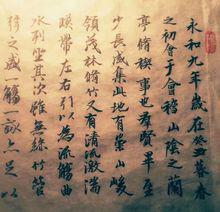 永和九年歲在癸丑暮春
之初會于會稽山陰之蘭
亭脩禊事也羣賢畢至
少長咸集此地有崇山峻
領茂林脩竹又有清流激湍
暎帶左右引以為流觴曲
水列坐其次雖無絲竹管
弦之盛一觴一詠亦足以